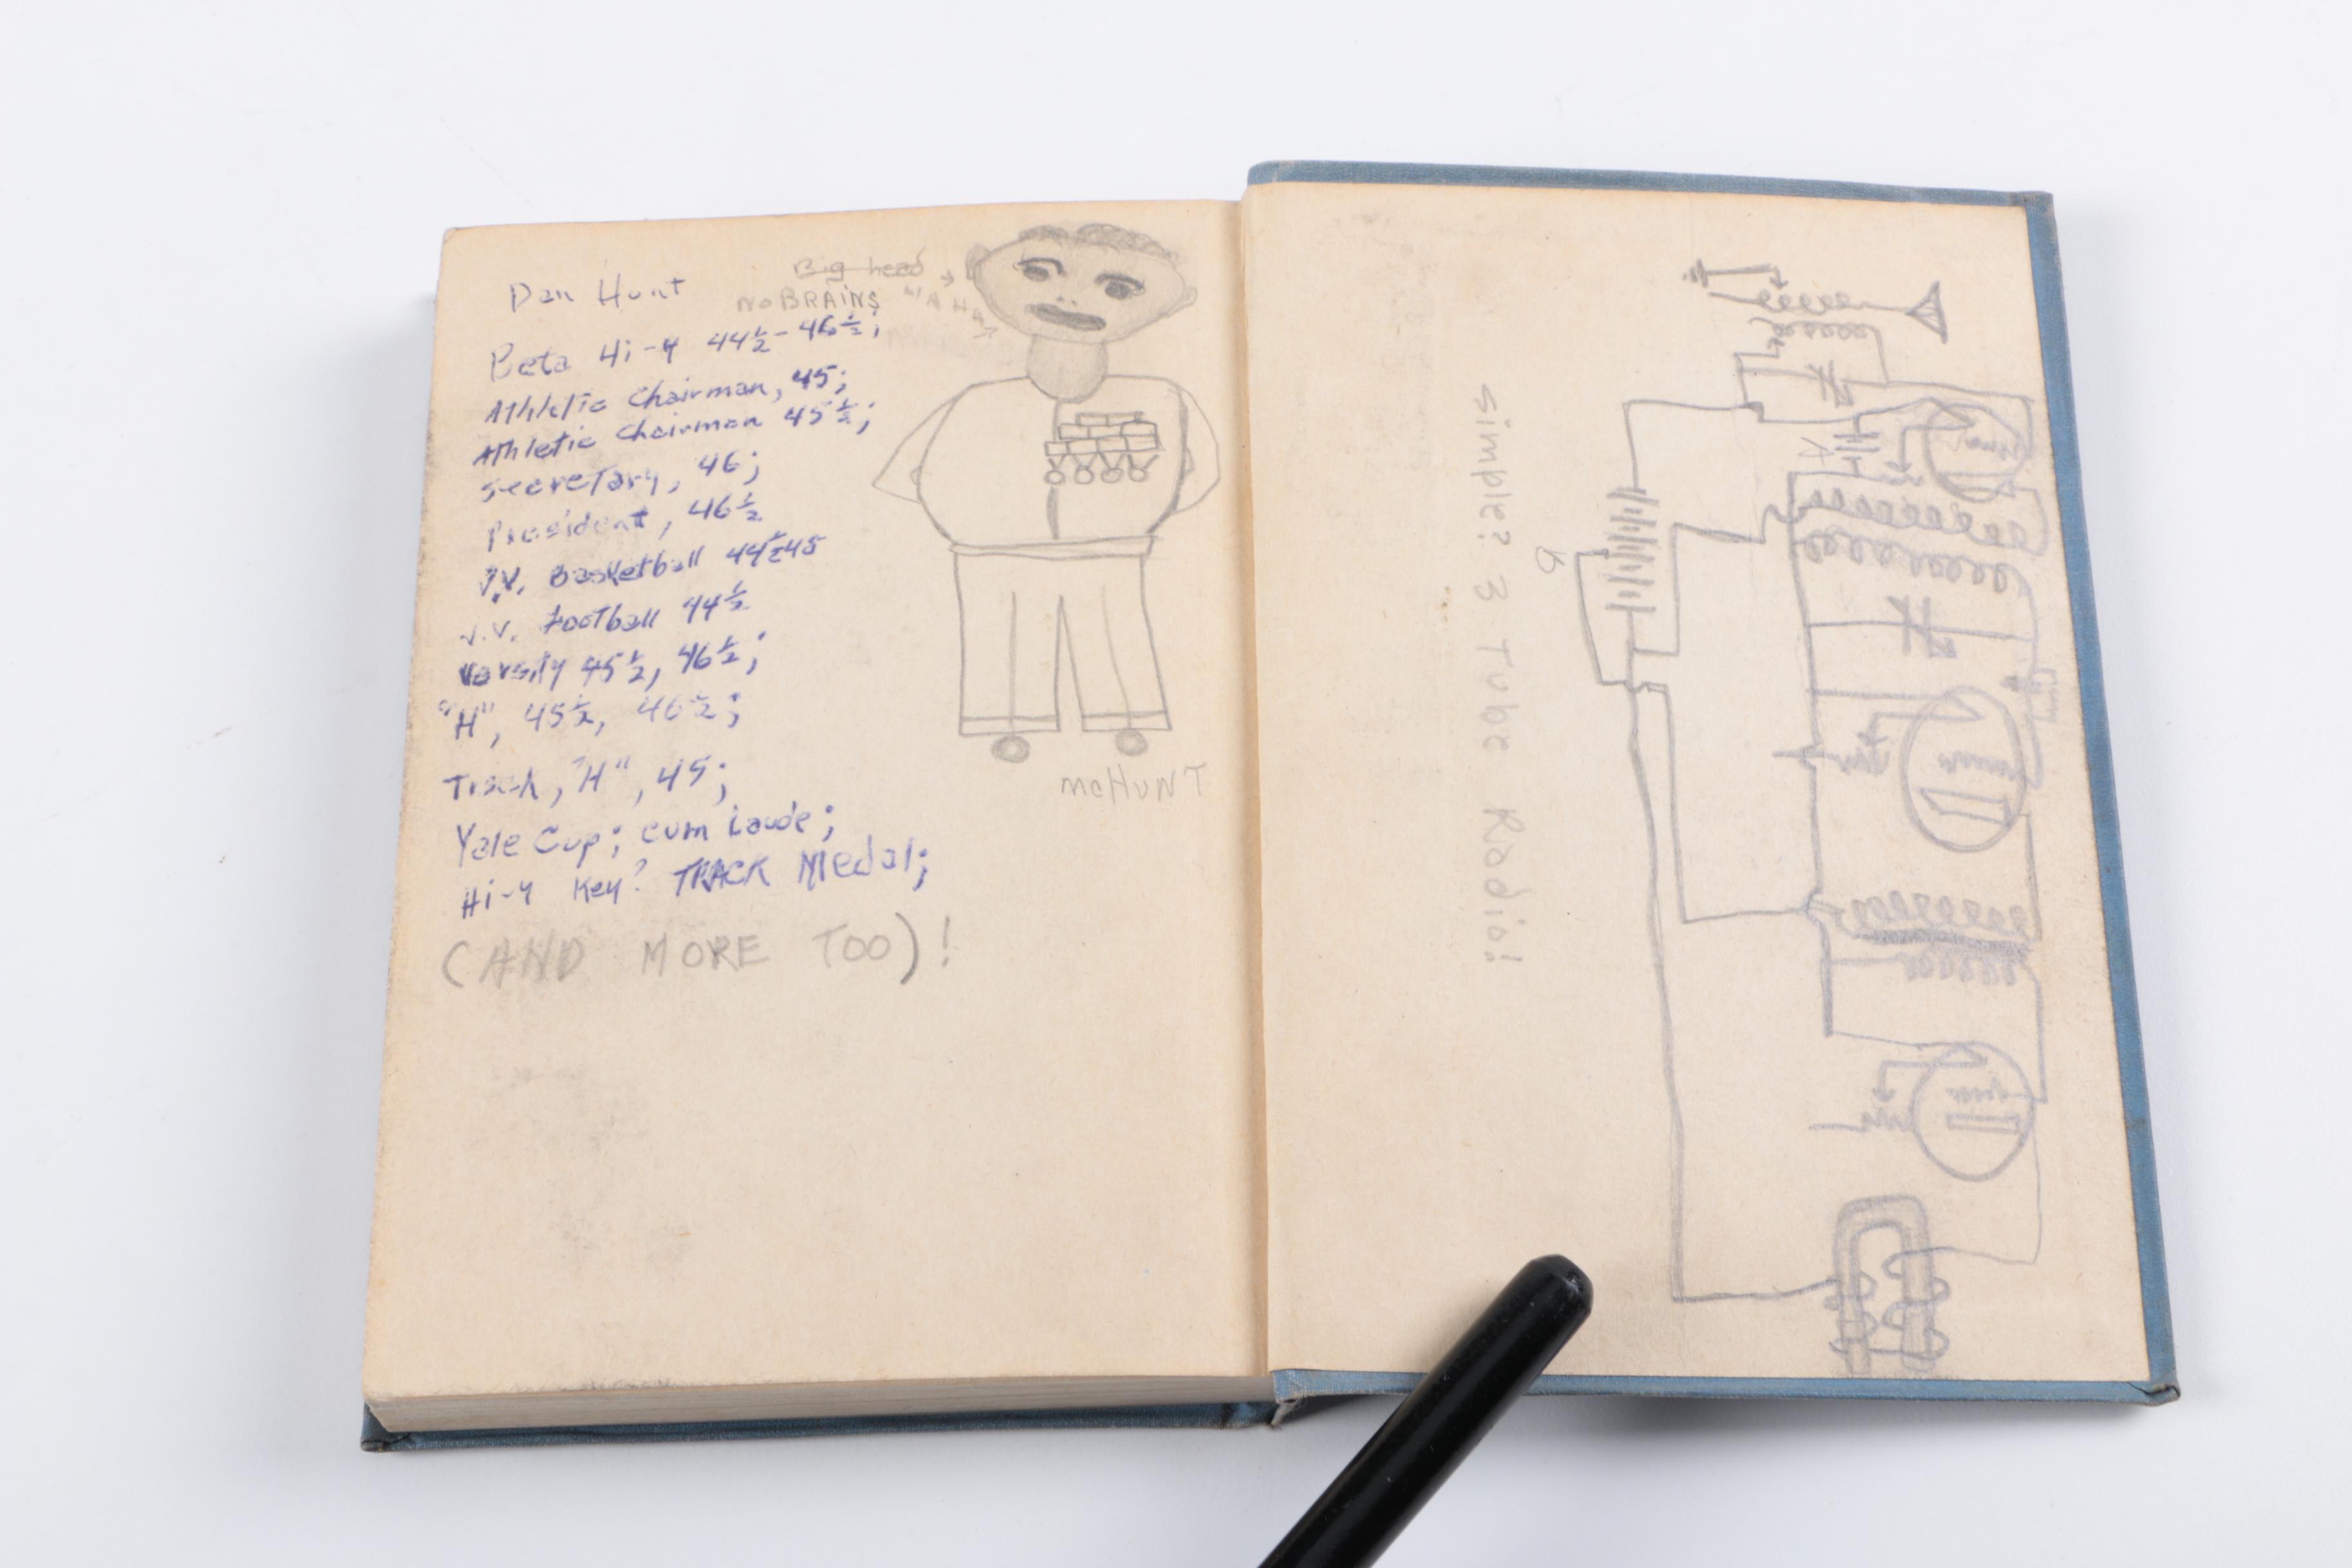 Dan Hunt
Big head
NO BRAINS
Beta Hi-Y 44½-46½;
Athletic Chairman, 45;
Athletic Chairman 45½;
Secretary, 46;
President, 46½
J.V. Basketball 44½45
J.V. Football 44½
Varsity 45½, 46½;
"H", 45½, 46½;
Track, "H", 45;
Yale Cup; cum Laude;
Hi-Y Key? TRACK Medal;
(AND MORE TOO)!
mcHUNT
simple? 3 Tube Radio!
B
A